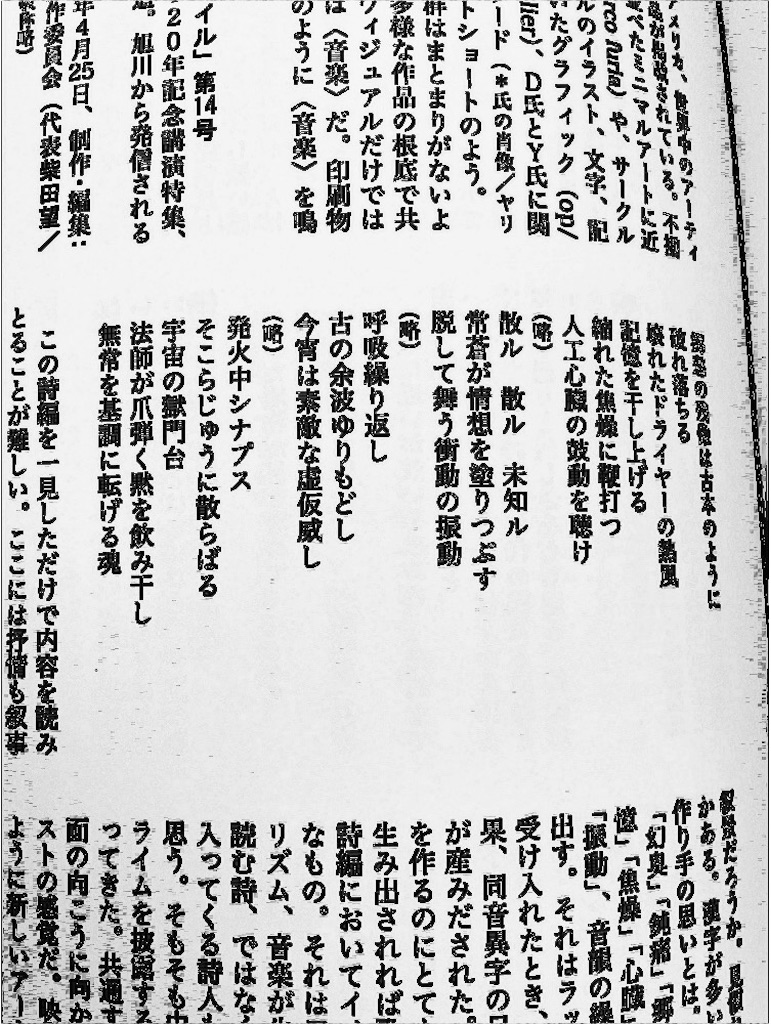 メリカ、世界中のアーティ
が掲載されている。不揃
並べたミニマルアートに近
ルのイラスト、文字、記
rco Furia）や、サークル
いたグラフィック（op/
lier）、D氏とY氏に関
トショートのよう。
ード（*氏の肖像／ヤリ
群はまとまりがないよ
多様な作品の根底で共
ヴィジュアルだけでは
は〈音楽〉だ。印刷物
のように〈音楽〉を鳴
イル」第14号
20年記念講演特集、
旭川から発信される
年4月25日、制作・編集：
作委員会（代表柴田望／
の残像は古本のように
破れ落ちる
壊れたドライヤーの熱風
記憶を干し上げる
縮れた焦燥に鞭打つ
人工心臓の鼓動を聴け
（略）
散ル　散ル　未知ル
常蒼が情想を塗りつぶす
脱して舞う衝動の振動
（略）
呼吸繰り返し
古の余波ゆりもどし
今宵は素敵な虚仮威し
（略）
発火中シナプス
そこらじゅうに散らばる
宇宙の獄門台
法師が爪弾く黙を飲み干し
無常を基調に転げる魂
この詩編を一見しただけで内容を読み
とることが難しい。ここには抒情も叙事
だろうか。見
かある。漢字が多い
作り手の思いとは。
「幻臭」「鈍痛」「郷
憶」「焦燥」「心臓」
「振動」、音韻の繰
出す。それはラッ
受け入れたとき、
果、同音異字の
が産みだされた。
を作るのにとて
生み出されれば
詩編においてイ
なもの。それは
リズム、音楽が
読む詩、ではな
入ってくる詩人
思う。そもそも
ライムを披露する
ってきた。共通す
面の向こうに向か
ストの感覚だ。映
ように新しいアー